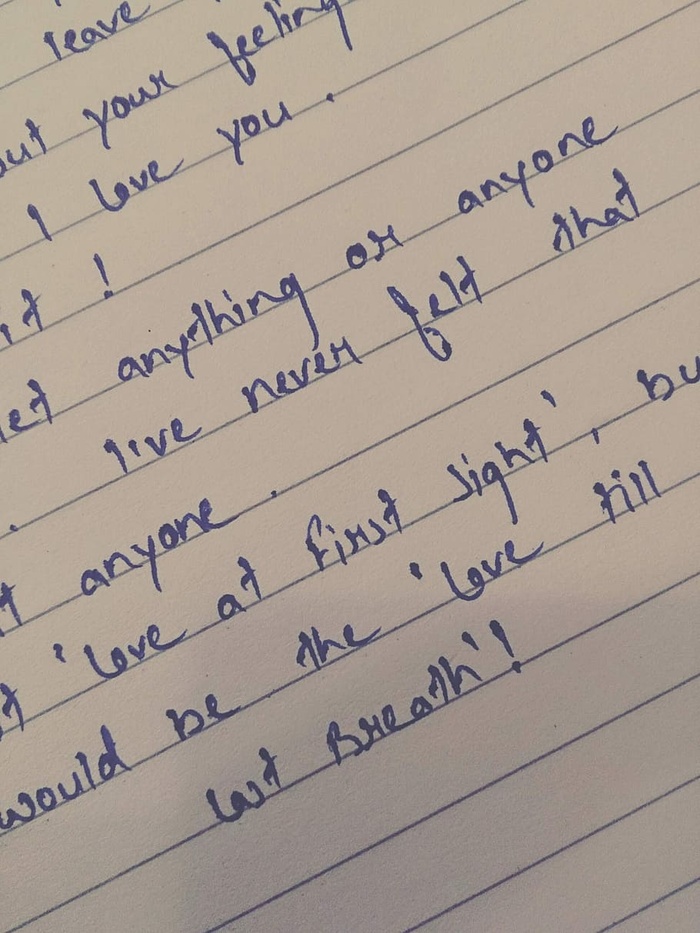 leave
out your feeling
I love you.
it !
let anything or anyone
. live never felt that
t anyone.
t 'love at first sight', bu
would be the 'love till
last Breath'!